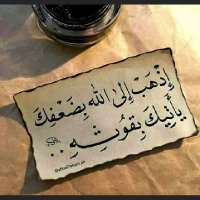 إِذْهَبْ إِلىَ اللهِ بِضَعْفِكَ
يَأتِيكَ بِقُوتِهِ ..